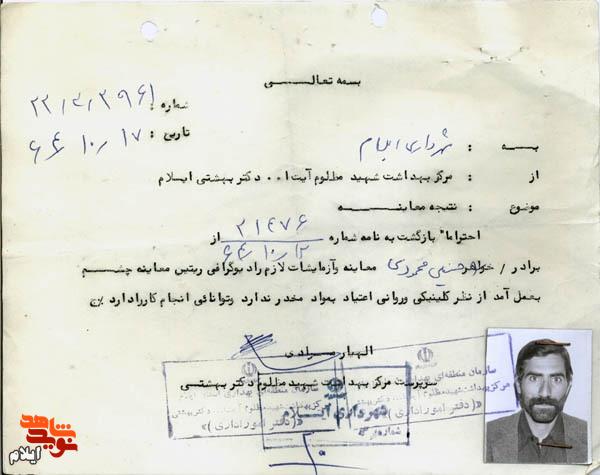 بسمه تعالـــی
شماره : ۲۲/۳/۳۹۶۱
تاریخ : ۶۴/۱۰/۱۷
بـــه : شهرداری ایلام
از : مرکز بهداشت شهید مظلوم آیت ا . . دکتر بهشتی ایـلام
موضوع : نتیجه معاینـــه
احتراما" بازگشت به نامه شماره ۲۱۴۷۶
۶۴/۱۰/۱۲ از
برادر / خواهر حسینی محمودی معاینه وآزمایشات لازم رادیوگرافی ریتین معاینه چشـــم
بعمل آمد از نظر کلینیکی وروانی اعتیاد بمواد مخدر ندارد وتوانائی انجام کاررادارد
الهیار مـرادی
سرپرست مرکز بهداشت شهید مظلوم دکتر بهشتـی
سازمان منطقه‌ای بهداری
(دفتر امور اداری)
شهرداری ایـــلام
شماره
نوید شاهد
ایلام